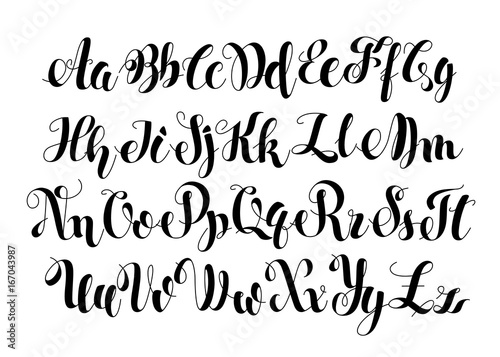 Aa Bb Cc Dd Ee Ff Gg
Hh Ii Jj Kk Ll Mm
Nn Oo Pp Qq Rr Ss Tt
Uu Vv Ww Xx Yy Zz
Adobe Stock | #167043987